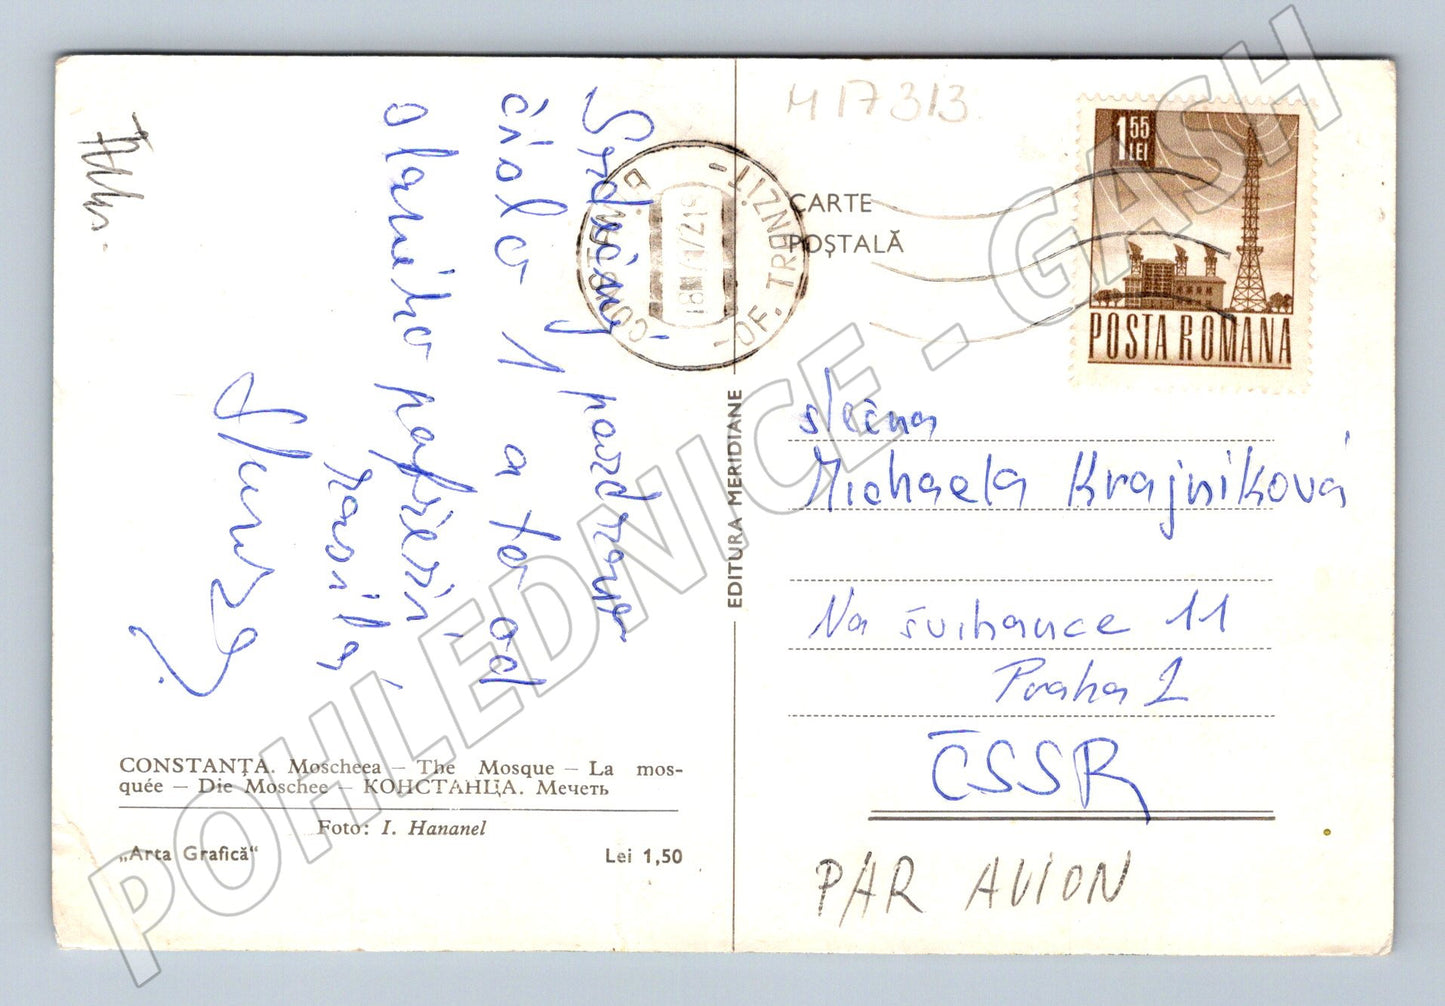 Srdečný pozdrav
číslo 1 a to od
slaného pobřeží
posílá
M 17313
CARTE
POȘTALĂ
CONSTANȚA
OF. TRANZIT
1 55
LEI
POSTA ROMANA
slečna
Michaela Krajníková
Na švihance 11
Praha 2
ČSSR
PAR AVION
EDITURA MERIDIANE
CONSTANȚA. Moscheea – The Mosque – La mos-
quée – Die Moschee – КОНСТАНЦА. Мечеть
Foto: I. Hananel
„Arta Grafică“
Lei 1,50
POHLEDNICE - GASH